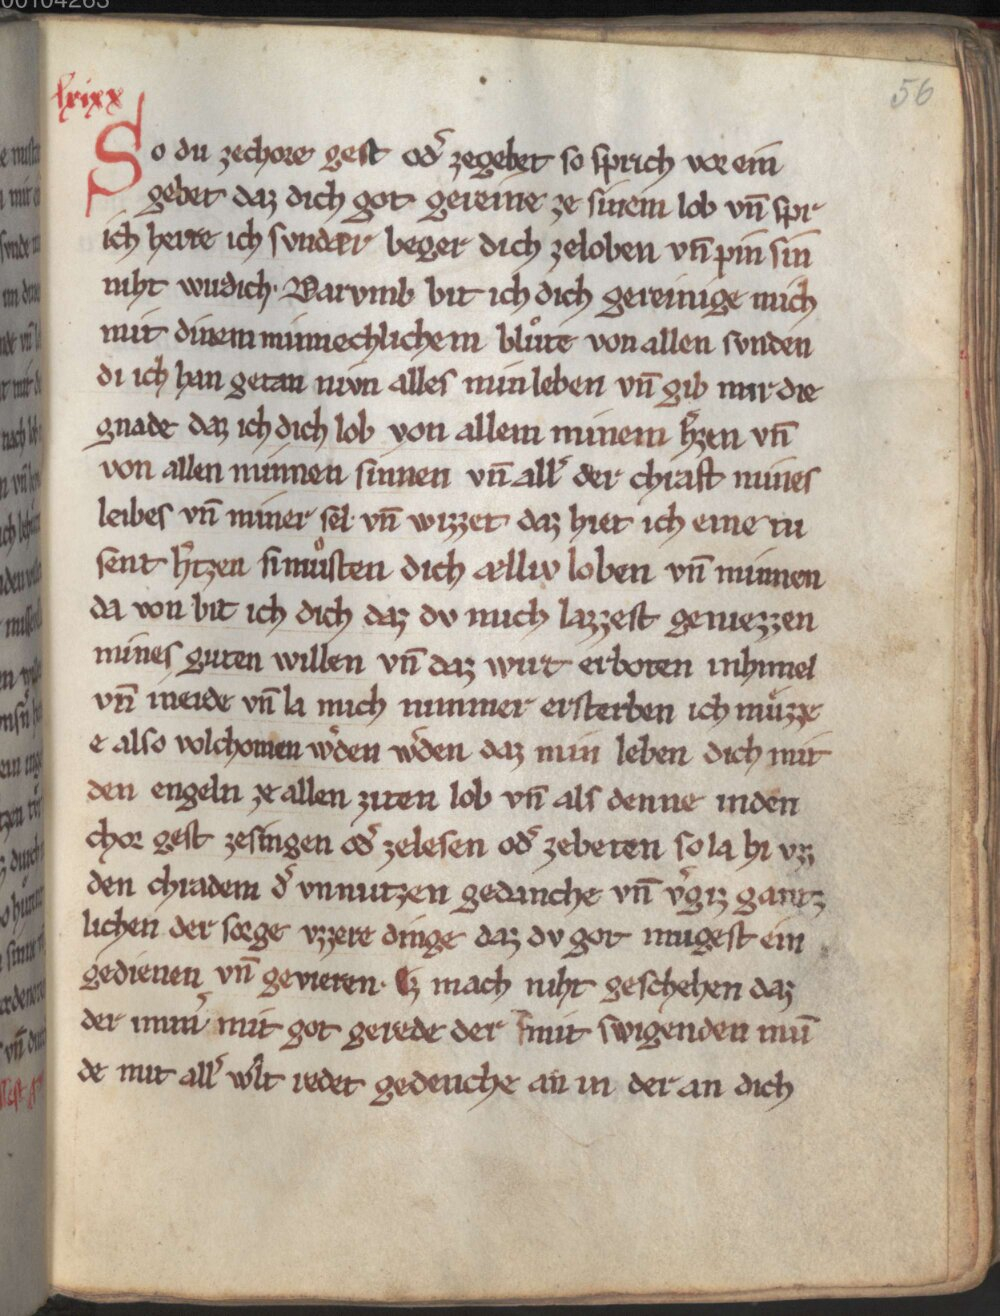 00104263
56
lxixx
So du zechore gest od̾ zegebet so sprich vor ein
gebet daz dich got gereine ze sinem lob vn̄ spr
ich herre ich sundær beger dich zeloben vn̄ pin sin
niht wirdich. Warvmb bit ich dich gereinige mich
mit dinem minnechlichem blůte von allen svnden
di ich han getan nivn alles min leben vn̄ gib mir die
gnade daz ich dich lob von allem minem h̾zen vn̄
von allen minnen sinnen vn̄ all̾ der chraft mines
leibes vn̄ miner sel. vn̄ wizzet daz hiet ich eine tu
sent h̾tzen si můsten dich ælliv loben vn̄ minnen
da von bit ich dich daz dv mich lazzest geniezzen
mines guten willen vn̄ daz wirt erboten inhimel
vn̄ inerde vn̄ la mich nimmer ersterben ich můzze
e also volchomen w̾den w̾den daz min leben dich mit
den engeln ze allen ziten lob vn̄ als denne inden
chor gest zesingen od̾ zelesen od̾ zebeten so la hi vz
den chradem d̾ vnnutzen gedanche vn̄ v̾giz gantz
lichen der sorge vzzere dinge daz dv got mugest ein
gedienen vn̄ gevieren. Ez mach niht geschehen daz
der inni mit got gerede der mit swigenden mū
de mit all̾ w̾lt redet gedenche an in der an dich